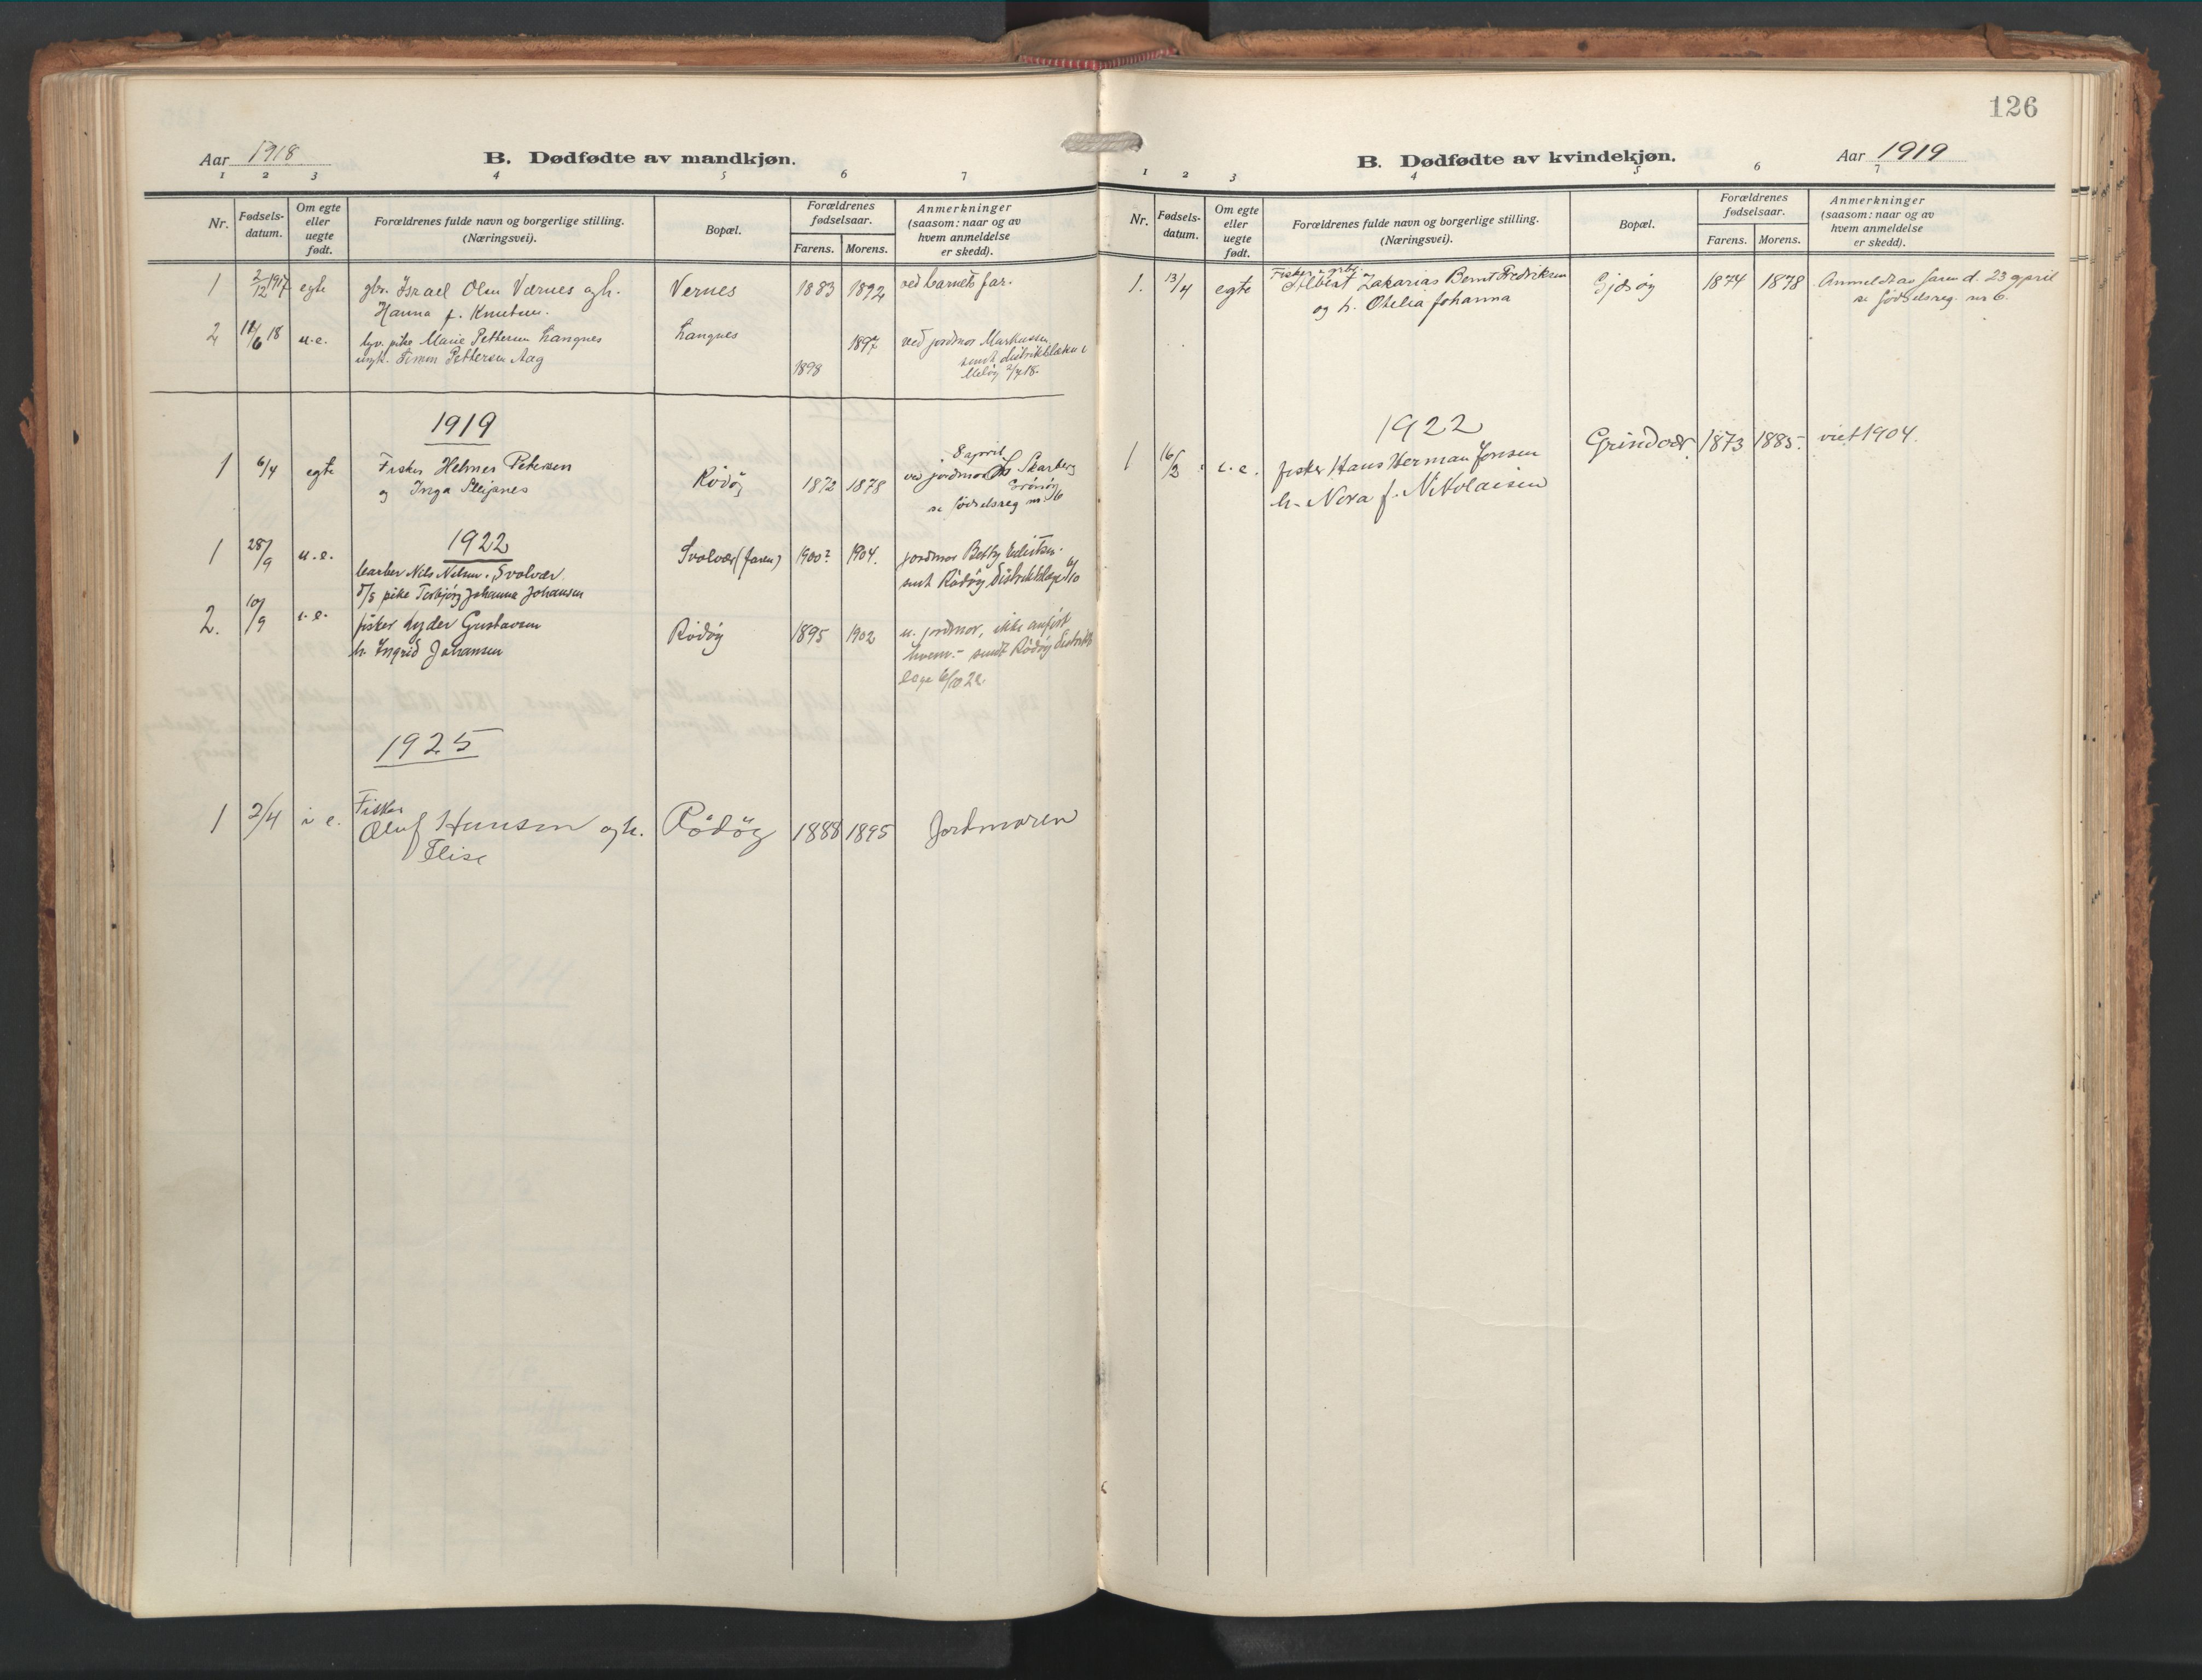 Aar 1918
B. Dødfødte av mandkjøn.
1 2 3 4 5 6 7
Nr.
Fødsels-
datum.
Om egte
eller
uegte
født.
Forældrenes fulde navn og borgerlige stilling.
(Næringsvei).
Bopæl.
Forældrenes
fødselsaar.
Farens. Morens.
Anmerkninger
(saasom: naar og av
hvem anmeldelse
er skedd).
1 2/12 1917 egte gbr. Israel Olsen Værnes og h. Vernes 1883 1892 ved barnets far.
Hanna f. Knutsen.
2 12/6 18 u.e. tjv. pike Marie Pettersen Langnes Langnes 1897 ved jordmor Markussen
ungk. Simon Pettersen Aag 1898 samt distriktslæken i
Meløy 2/7 18.
1919
1 6/4 egte Fisker Helmer Petersen Rödöy 1872 1878 8 april
og Inga Sleipnes ved jordmor Skarberg
Grönöy
se födselsreg nr. 16
1922
1 28/9 u.e. barber Nils Nilsen, Svolvær Svolvær (faren) 1900? 1904. jordmor Betty
pike Torbjörg Johanna Johansen samt Rödöy Distriktslæge 6/10
2. 10/9 i.e. fisker Lyder Gustavsen Rödöy 1895 1902 u. jordmor, ikke anfört
h. Ingrid Johansen hvem. - samt Rödöy Distrikts
læge 6/10 22.
1925
1 2/4 i e. Fisker
Oluf Hansen og h. Rödöy 1888 1895 Jordmoren
Elise
126
B. Dødfødte av kvindekjøn.
Aar 1919
1 2 3 4 5 6 7
Nr.
Fødsels-
datum.
Om egte
eller
uegte
født.
Forældrenes fulde navn og borgerlige stilling.
(Næringsvei).
Bopæl.
Forældrenes
fødselsaar.
Farens. Morens.
Anmerkninger
(saasom: naar og av
hvem anmeldelse
er skedd).
Fisker og grbr.
1. 13/4 egte Albert Zakarias Bernt Fredriksen Gjæsöy 1874 1878 Anmeldt av faren d. 23 april
og h. Otelia Johanna se födselsreg. nr 6.
1922
1 16/2 i.e. fisker Hans Herman Jensen Grindvær. 1873 1885. viet 1904.
h. Nora f. Nikolaisen